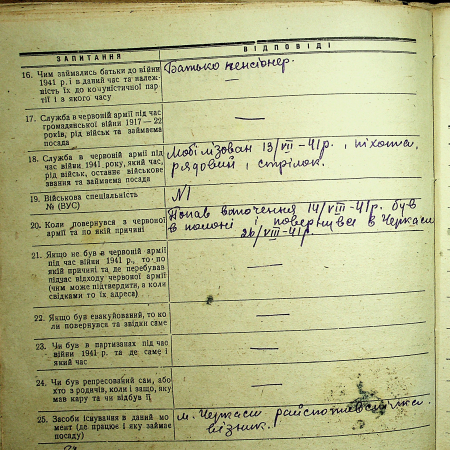 ЗАПИТАННЯ
ВІДПОВІДІ
16. Чим займались батьки до війни
1941 р. і в даний час та належ-
ність їх до комуністичної пар-
тії і з якого часу
Батько пенсіонер.
—
17. Служба в червоній армії під час
громадянської війни 1917—22
років, рід військ та займаема
посада
—
18. Служба в червоній армії під
час війни 1941 року, який час,
рід військ, останнє військове
звання та займаема посада
Мобілізован 13/VII-41р., піхота,
рядовий, стрілок.
19. Військова спеціальність
№ (ВУС)
№1
20. Коли повернувся з червоної
армії та по якій причині
Попав в полон 14/VIII-41р. був
в полоні і повернувся в Черкаси
26/VIII-41р.
21. Якщо не був в червоній армії
під час війни 1941 р., то по
якій причині та де перебував
підчас відходу червоної армії
(чим може підтвердити, а коли
свідками то їх адреса)
—
22. Якщо був евакуйований, то ко-
ли повернувся та звідки саме
—
23. Чи був в партизанах під час
війни 1941 р. та де саме і
який час
—
24. Чи був репресований сам, або
хто з родичів, коли і защо, яку
мав кару та чи відбув її
—
25. Засоби існування в даний мо-
мент (де працює і яку займає
посаду)
м. Черкаси
візник.